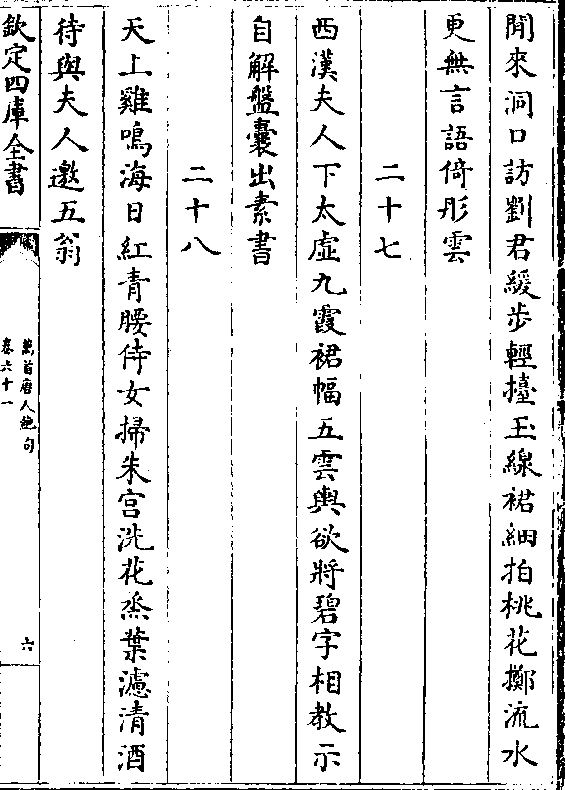 閒來洞口訪劉君緩步輕擡玉線裙細拍桃花擲流水
更無言語倚彤雲
二十七
西漢夫人下太虛九霞裙幅五雲輿欲將碧字相教示
自解盤囊出素書
二十八
天上雞鳴海日紅青腰侍女掃朱宫洗花烝葉濾清酒
待與夫人邀五翁
欽定四庫全書
萬首唐人絶句
卷六十一
六